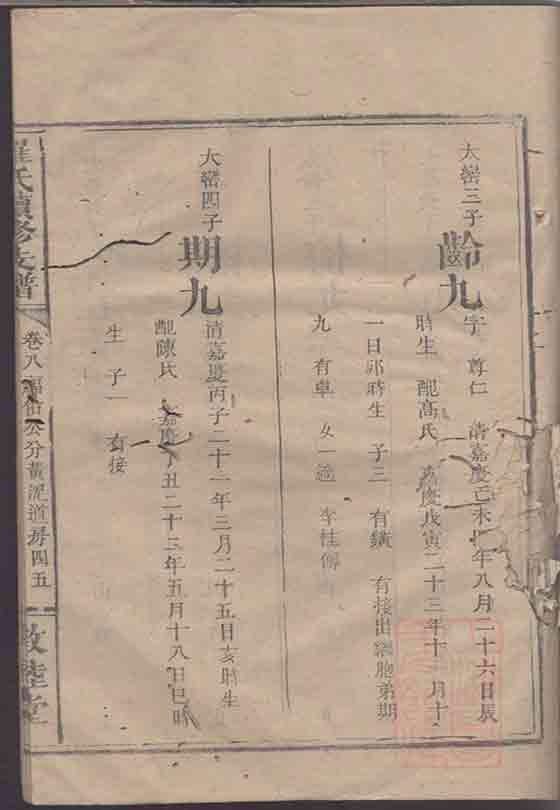 大嵤三子
齡九
字 尊仁 清嘉慶己未 年八月二十六日辰
時生 配高氏 嘉慶戊寅二十三年十 月十
一日卯時生 子三 有鐄 有接出繼胞弟期
九 有卓 女一適 李桂傳
大嵤四子
期九
清嘉慶丙子二十一年三月二十五日亥時生
配陳氏 嘉慶丁丑二十三年五月十八日巳時
生 子一 有接
氏續修支譜
卷八 公分黃泥道房四五
敦睦堂